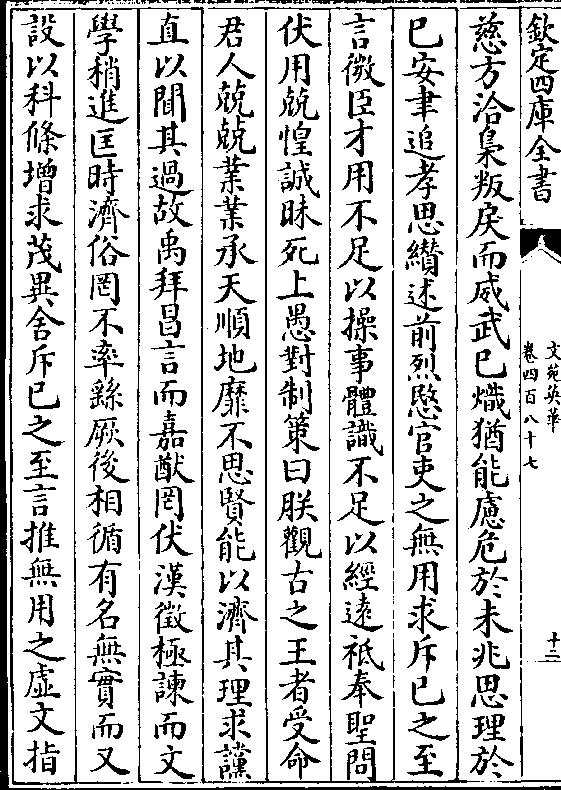 欽定四庫全書
文苑英華
卷四百八十七
十二
慈方洽梟叛戾而威武已熾猶能慮危於未兆思理於
已安聿追孝思纉述前烈愍官吏之無用求斥已之至
言微臣才用不足以操事體識不足以經遠祗奉聖問
伏用兢惶誠昧死上愚對制策曰朕觀古之王者受命
君人兢兢業業承天順地靡不思賢能以濟其理求讜
直以聞其過故禹拜昌言而嘉猷罔伏漢徵極諫而文
學稍進匡時濟俗罔不率繇厥後相循有名無實而又
設以科條增求茂異舍斥已之至言推無用之虛文指